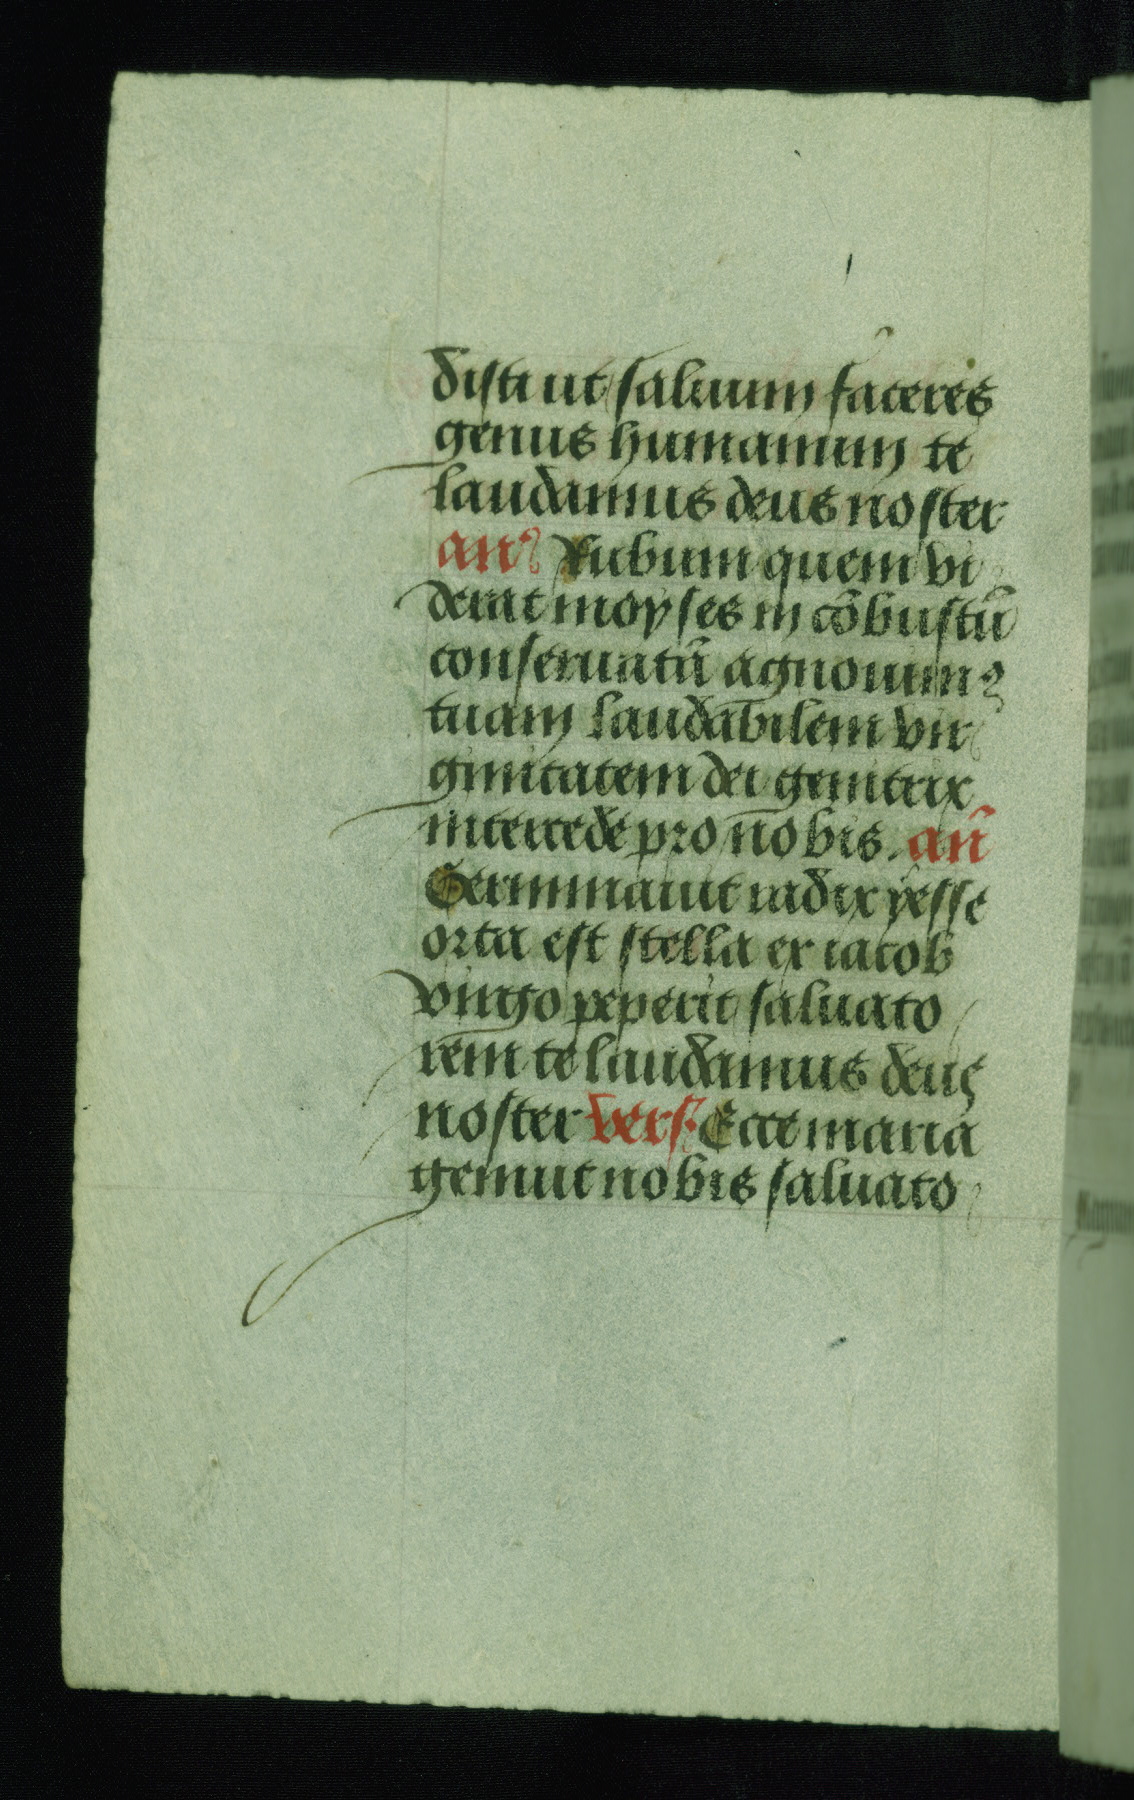 disti ut saluum faceres
genus humanum te
laudamus deus noster
an᷑ Rubum quem vi
derat moyses in cōbustū
conseruatū agnouim᷒
tuam laudabilem vir
ginitatem dei genitrix
intercede pro nobis. an̄
Germinauit radix yesse
orta est stella ex iacob
virgo peperit saluato
rem te laudamus deus
noster vers. Ecce maria
genuit nobis saluato